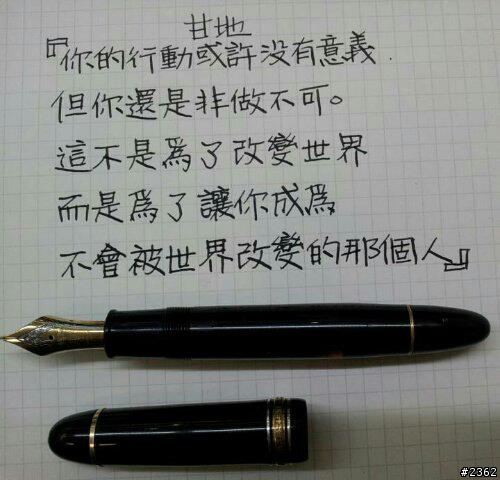 甘地
『你的行動或許没有意義
但你還是非做不可。
這不是為了改變世界
而是為了讓你成為
不會被世界改變的那個人』
#2362